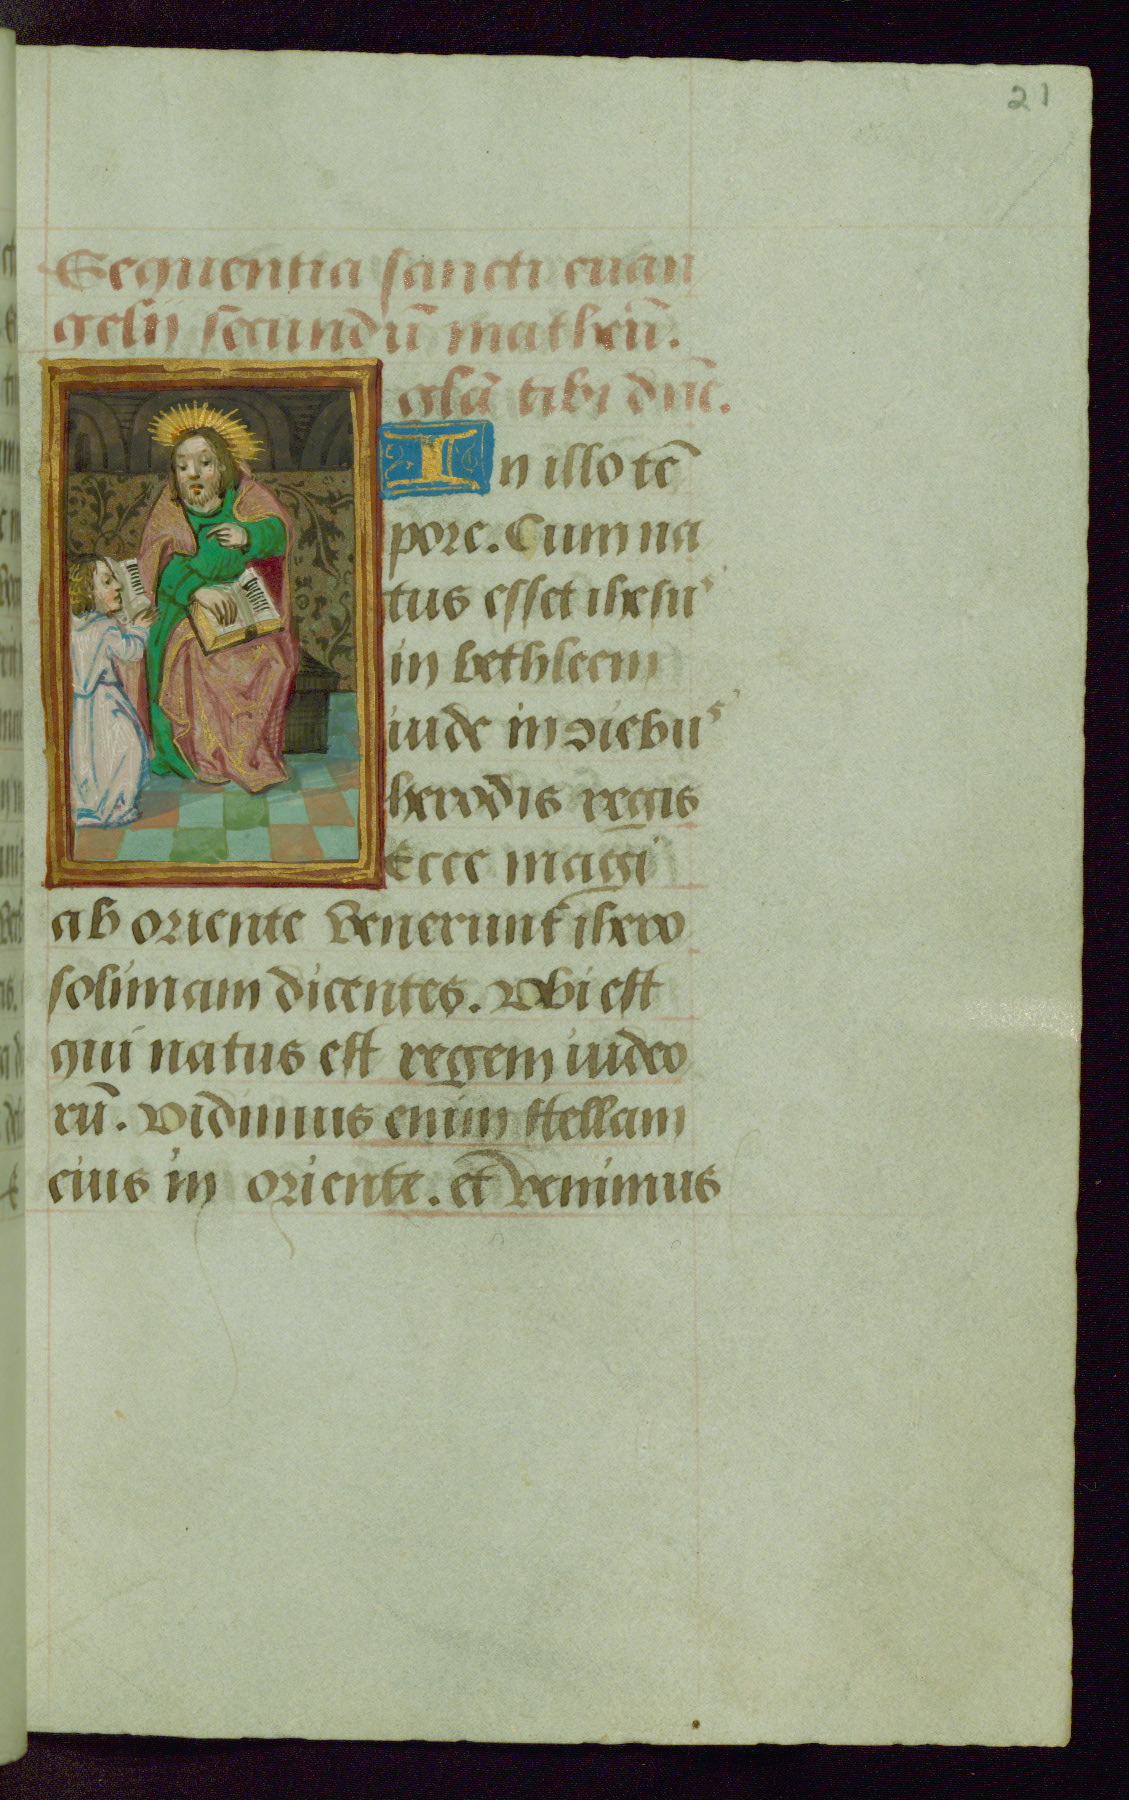 21
Sequentia sancti euan
gelij secundū matheū.
glā tibi dñe.
In illo tē
pore. Cum na
tus esset ihesus
in bethleem
iude in diebus
herodis regis
Ecce magi
ab oriente venerunt ihero
solimam dicentes. Vbi est
qui natus est regem iudeo
rū. Vidimus enim stellam
eius in oriente. et venimus